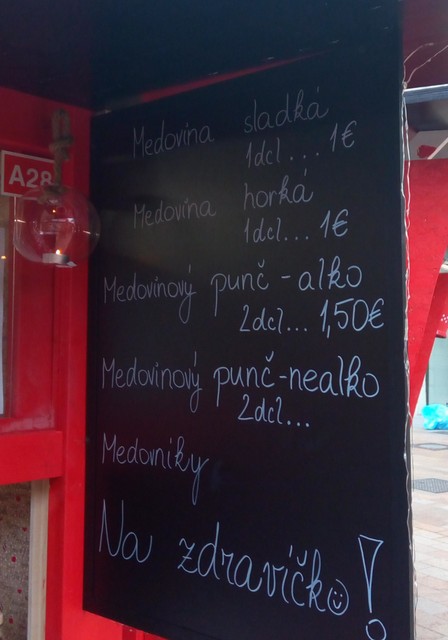 A28
Medovina sladká
1dcl... 1€
Medovina horká
1dcl... 1€
Medovinový punč - alko
2dcl... 1,50€
Medovinový punč-nealko
2dcl...
Medovníky
Na zdravíčko!